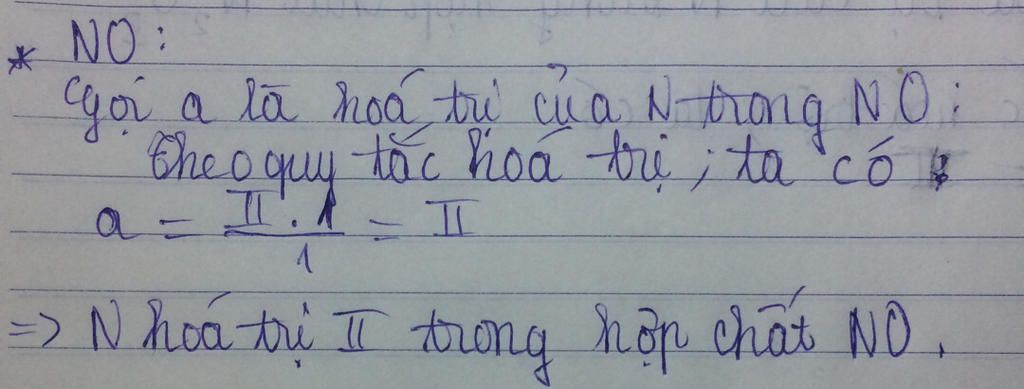 * NO:
Gọi a là hoá trị của N trong NO:
Theo quy tắc hoá trị, ta có:
a = II.1/1 = II
=> N hoá trị II trong hợp chất NO.